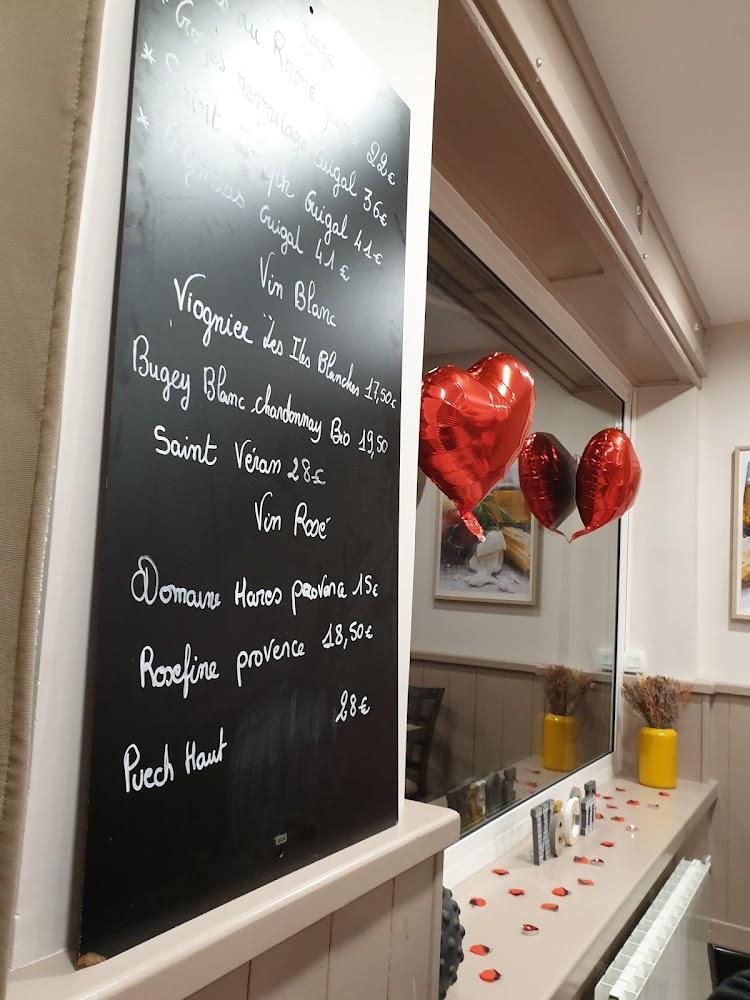 du Rhône 22€
* Crozes Hermitage Guigal 36€
* Saint Joseph Guigal 41€
* Gigondas Guigal 41€
Vin Blanc
Viognier Les Iles Blanches 17,50€
Bugey Blanc chardonnay Bio 19,50
Saint Véran 28€
Vin Rosé
Domaine Haros provence 15€
Rosefine provence 18,50€
Puech Haut 28€